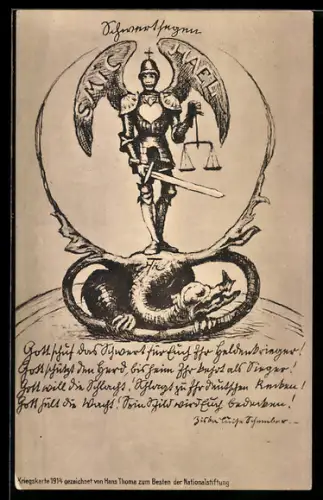 Schwertsegen
SMIC HAEL
Gott schuf das Schwert für Euch Ihr Heldenkrieger!
Gott schützt den Herd, bis heim Ihr kehrt als Sieger!
Gott will die Schlacht! Schlagt zu Ihr deutschen Recken!
Gott hält die Wacht! Sein Schild wird Euch bedecken!
Luise
Kriegskarte 1914 gezeichnet von Hans Thoma zum Besten der Nationalstiftung